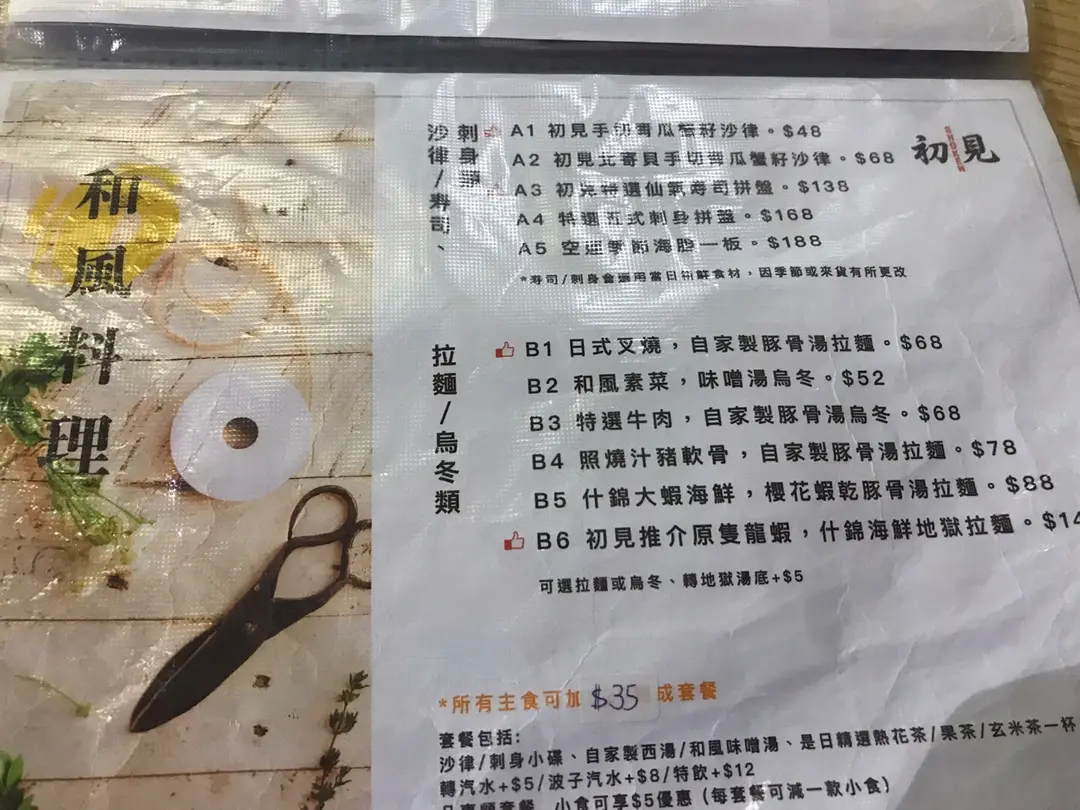 和風料理
初見
刺身類
沙律/寿司、
A1 初見手切青瓜蟹籽沙律。$48
A2 初見北寄貝手切青瓜蟹籽沙律。$68
A3 初見特選仙氣寿司拼盤。$138
A4 特選五式刺身拼盤。$168
A5 空運季節海膽一板。$188
*寿司/刺身會選用當日新鮮食材，因季節或來貨有所更改
拉麵/烏冬類
B1 日式叉燒，自家製豚骨湯拉麵。$68
B2 和風素菜，味噌湯烏冬。$52
B3 特選牛肉，自家製豚骨湯烏冬。$68
B4 照燒汁豬軟骨，自家製豚骨湯拉麵。$78
B5 什錦大蝦海鮮，櫻花蝦乾豚骨湯拉麵。$88
B6 初見推介原隻龍蝦，什錦海鮮地獄拉麵。
可選拉麵或烏冬、轉地獄湯底+$5
*所有主食可加 $35 成套餐
套餐包括:
沙律/刺身小碟、自家製西湯/和風味噌湯、是日精選熱花茶/果茶/玄米茶一杯
轉汽水+$5/波子汽水+$8/特飲+$12
套餐 小食可享$5優惠 (每套餐可減一款小食)